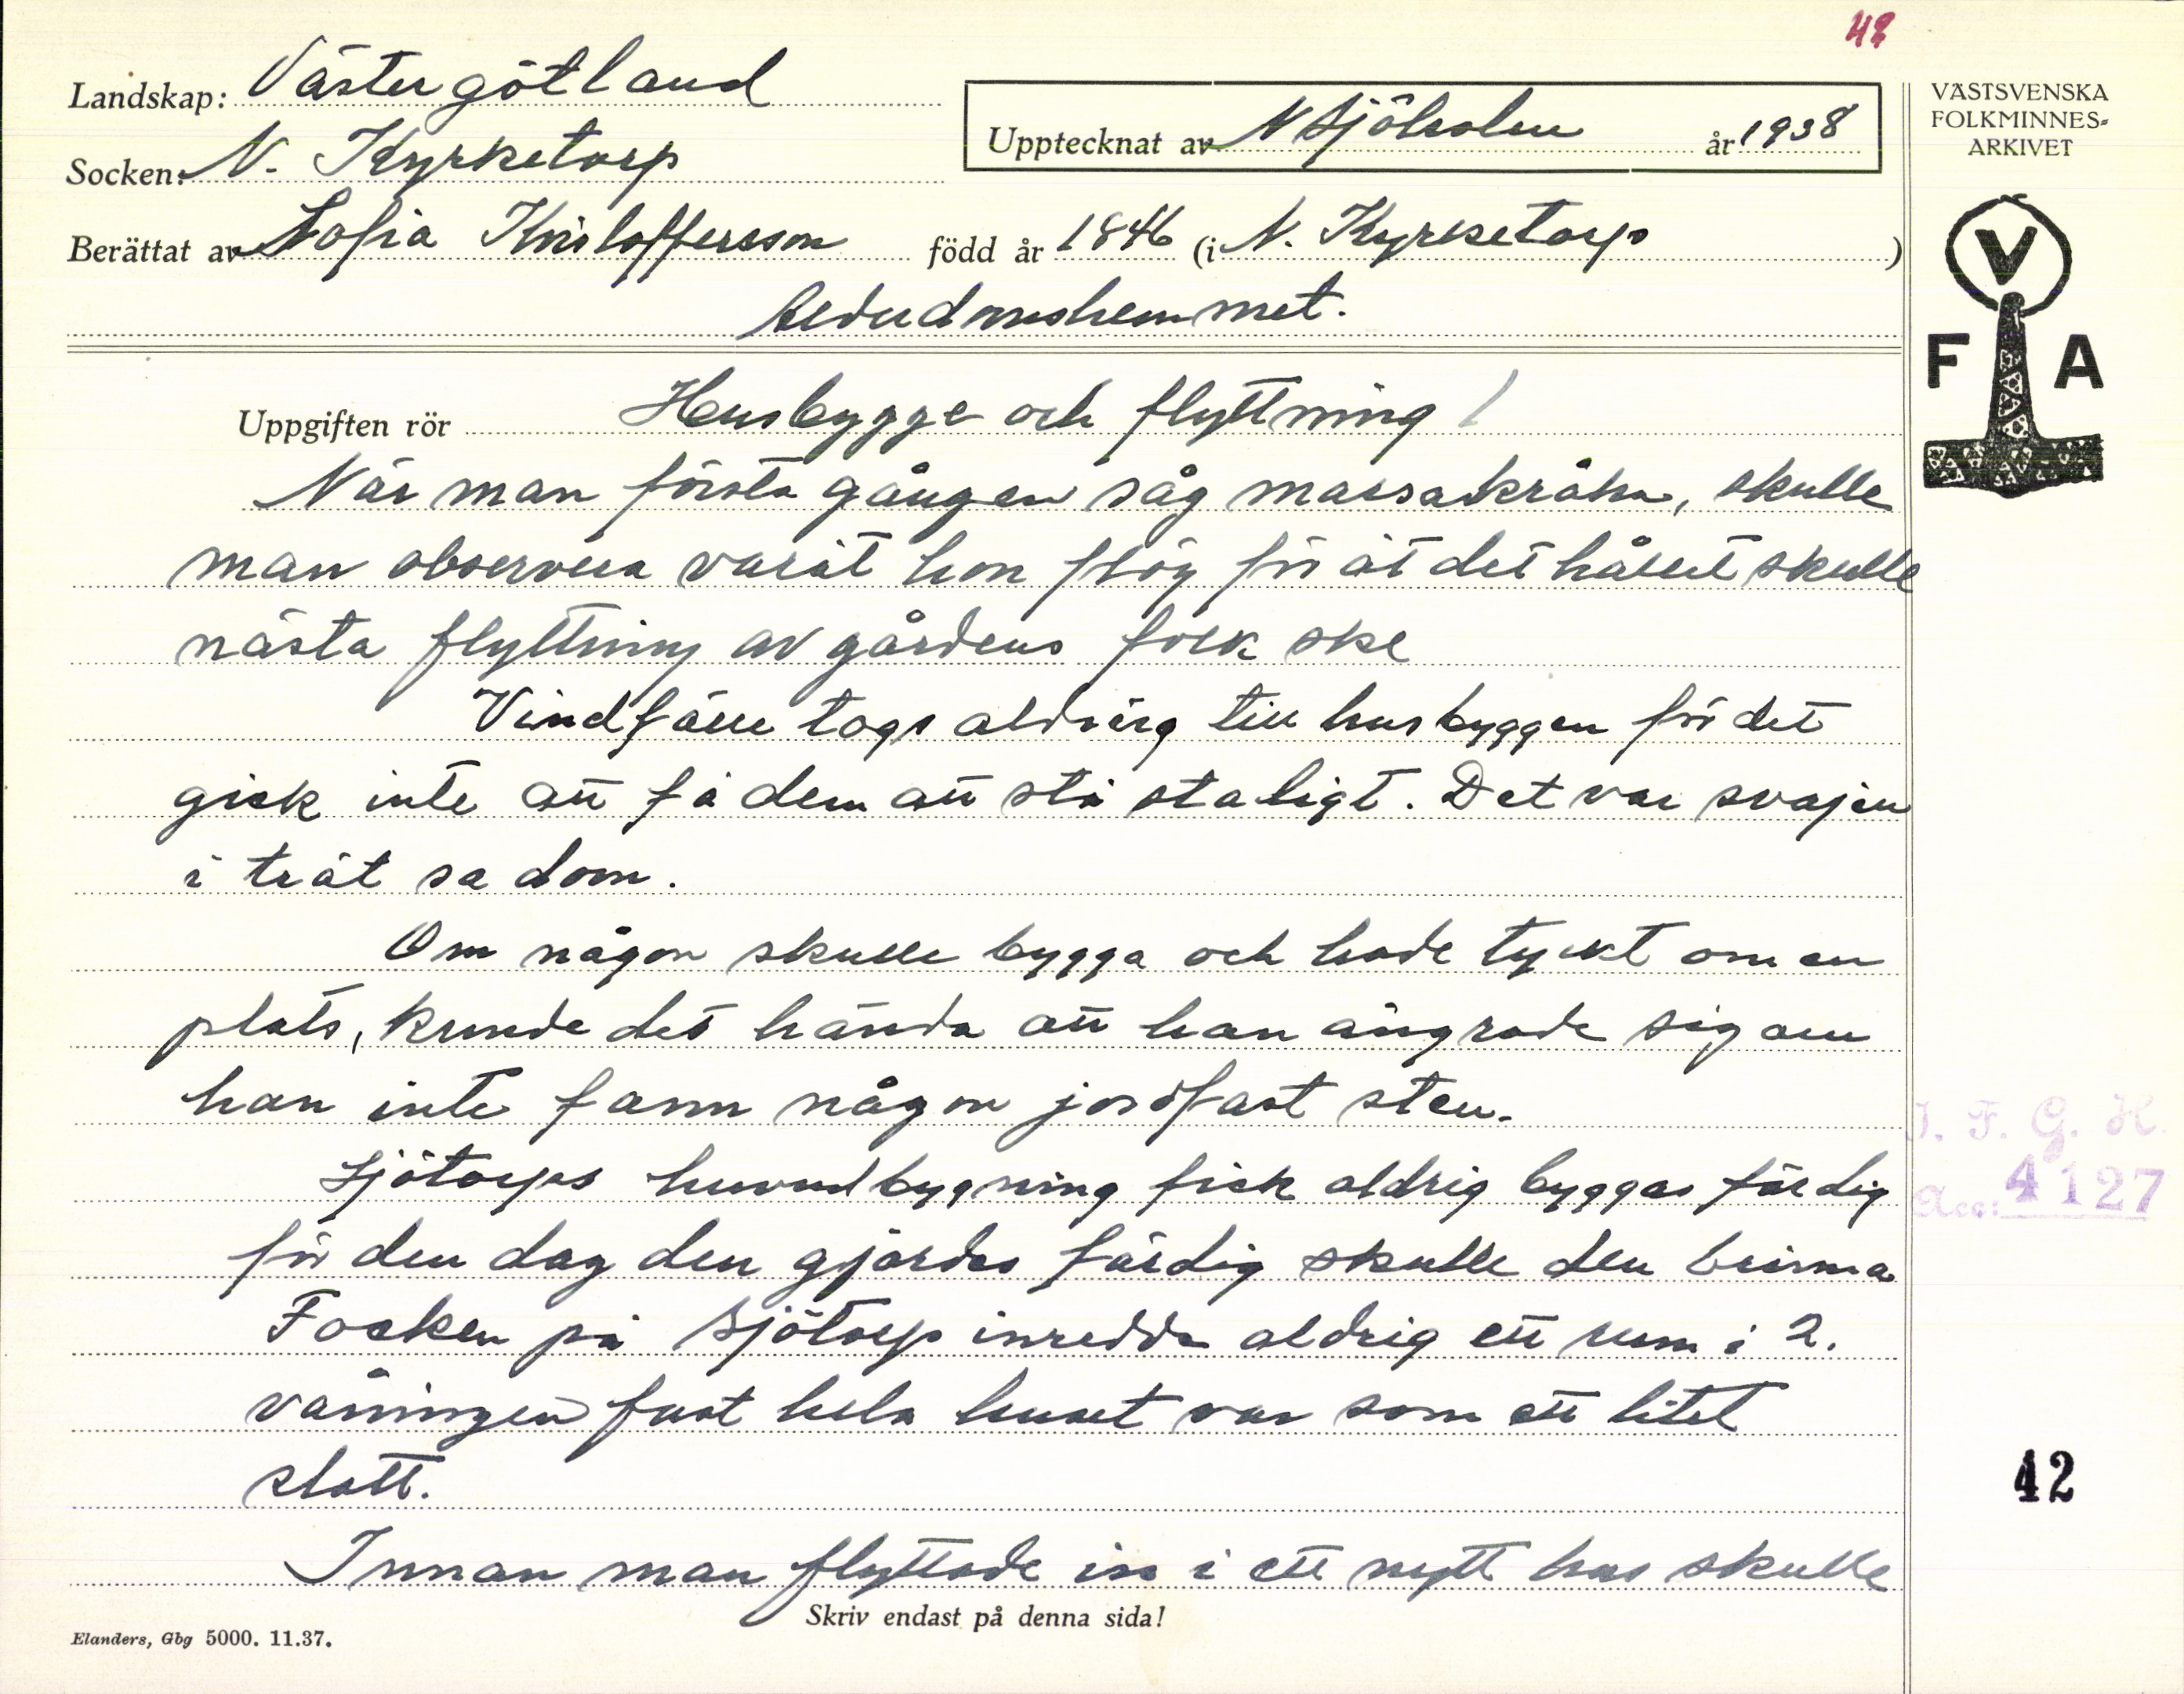 42
Landskap: Västergötland
Socken: N. Kyrketorp
Upptecknat av N Sjöholm år 1938
VÄSTSVENSKA
FOLKMINNES-
ARKIVET
Berättat av Sofia Kristoffersson född år 1846 (i N. Kyrketorp )
Ålderdomshemmet.
V
F A
Uppgiften rör Husbygge och flyttning
När man första gången såg massakråka, skulle
man observera varåt hon flög för åt det hållet skulle
nästa flyttning av gårdens folk ske
Vindfälle togs aldrig till husbyggen för det
gick inte att få dem att stå stadigt. Det var svajen
i trät sa dom.
Om någon skulle bygga och hade tyckt om en
plats, kunde det hända att han ångrade sig om
han inte fann någon jordfast sten.
Sjötorps huvudbygning fick aldrig byggas färdig
för den dag den gjordes färdig skulle den brinna
Focken på Sjötorp inredde aldrig ett rum i 2.
våningen fast hela huset var som ett litet
slott.
Innan man flyttade in i ett nytt hus skulle
I. F. G. H.
Acc: 4127
42
Skriv endast på denna sida!
Elanders, Gbg 5000. 11.37.